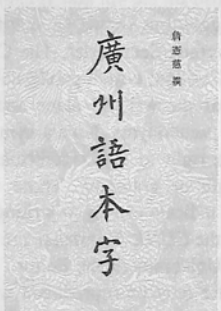 詹憲慈 撰
廣州語本字